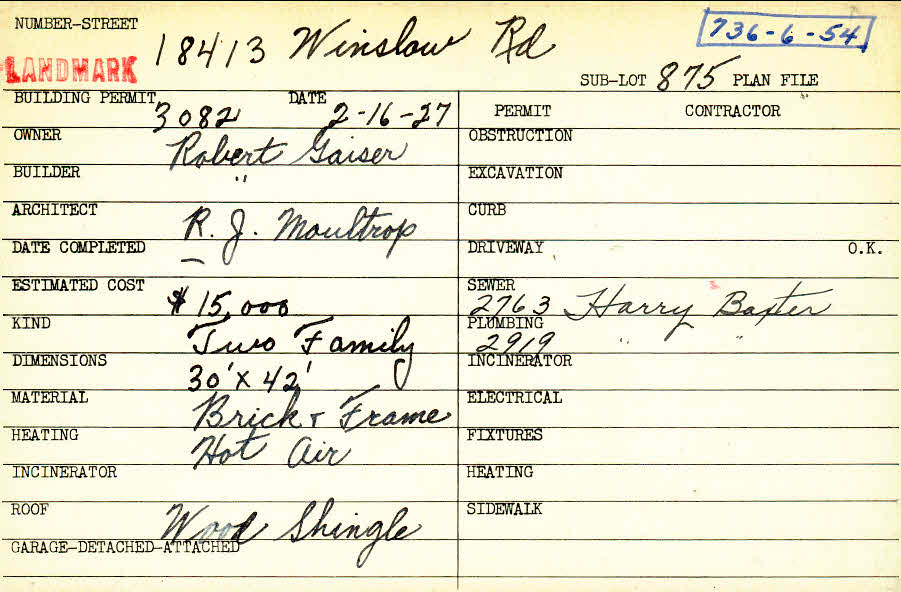 NUMBER-STREET 18413 Winslow Rd 736-6-54
LANDMARK SUB-LOT 875 PLAN FILE
BUILDING PERMIT 3082 DATE 2-16-27 PERMIT CONTRACTOR
OWNER Robert Gaiser OBSTRUCTION
BUILDER " EXCAVATION
ARCHITECT R. J. Moultrop CURB
DATE COMPLETED — DRIVEWAY O.K.
ESTIMATED COST $15,000 SEWER 2763 Harry Baxter
KIND Two Family PLUMBING 2919 " "
DIMENSIONS 30' x 42' INCINERATOR
MATERIAL Brick + Frame ELECTRICAL
HEATING Hot Air FIXTURES
INCINERATOR HEATING
ROOF Wood Shingle SIDEWALK
GARAGE-DETACHED-ATTACHED